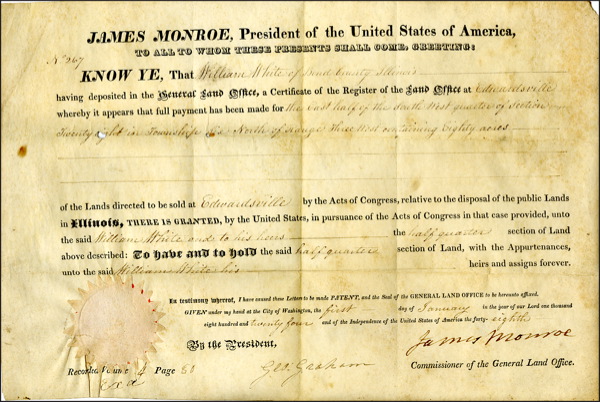 JAMES MONROE, President of the United States of America,
TO ALL TO WHOM THESE PRESENTS SHALL COME, GREETING:
No 267
KNOW YE, That William White of Bond County Illinois
having deposited in the General Land Office, a Certificate of the Register of the Land Office at Edwardsville
whereby it appears that full payment has been made for the East half of the South West quarter of Section
Twenty eight in township six North of Range Three West containing Eighty acres
of the Lands directed to be sold at Edwardsville by the Acts of Congress, relative to the disposal of the public Lands
in Illinois, THERE IS GRANTED, by the United States, in pursuance of the Acts of Congress in that case provided, unto
the said William White and to his heirs the half quarter section of Land
above described: To have and to hold the said half quarter section of Land, with the Appurtenances,
unto the said William White his heirs and assigns forever.
In testimony whereof, I have caused these Letters to be made PATENT, and the Seal of the GENERAL LAND OFFICE to be hereunto affixed.
GIVEN under my hand at the City of Washington, the first day of January in the year of our Lord one thousand
eight hundred and twenty four and of the Independence of the United States of America the forty-eighth
By the President, James Monroe
Geo: Graham Commissioner of the General Land Office.
Record Volume 4 Page 51
exd